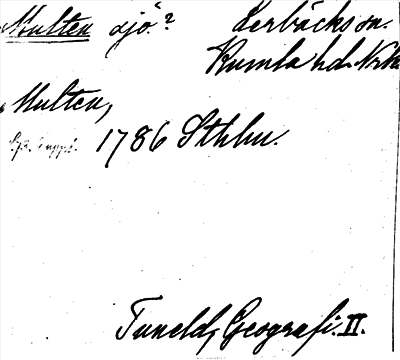 Multen sjö? Lerbäcks sn.
Kumla hd. Nrke
Multen,
1786 Sthlm.
Tuneld, Geografi. II.